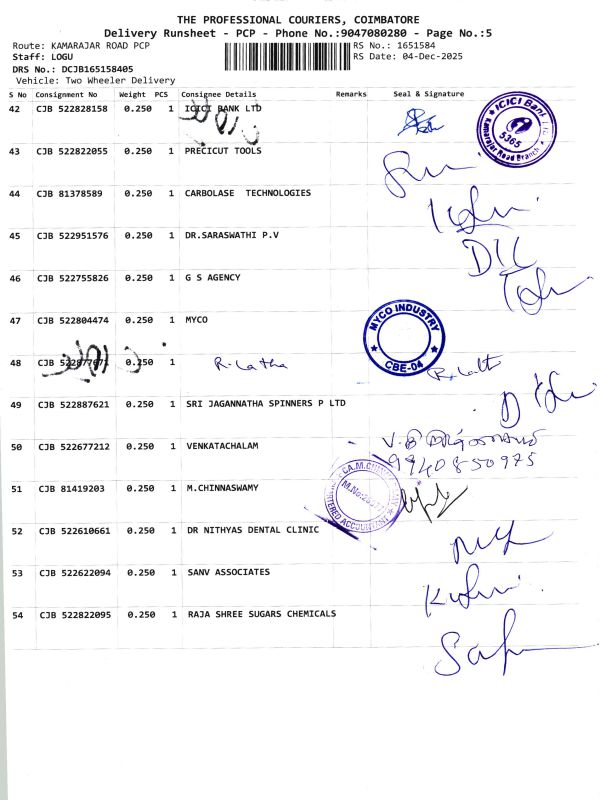 THE PROFESSIONAL COURIERS, COIMBATORE
Delivery Runsheet - PCP - Phone No.:9047080280 - Page No.:5
Route: KAMARAJAR ROAD PCP RS No.: 1651584
Staff: LOGU RS Date: 04-Dec-2025
DRS No.: DCJB165158405
Vehicle: Two Wheeler Delivery
S No Consignment No Weight PCS Consignee Details Remarks Seal & Signature
42 CJB 522828158 0.250 1 ICICI BANK LTD
ICICI Bank
5365
Kamarajar Road Branch
43 CJB 522822055 0.250 1 PRECICUT TOOLS
44 CJB 81378589 0.250 1 CARBOLASE TECHNOLOGIES
45 CJB 522951576 0.250 1 DR.SARASWATHI P.V
46 CJB 522755826 0.250 1 G S AGENCY
47 CJB 522804474 0.250 1 MYCO
MYCO INDUSTRY
CBE-04
48 CJB 0.250 1 R. Latha
49 CJB 522887621 0.250 1 SRI JAGANNATHA SPINNERS P LTD
50 CJB 522677212 0.250 1 VENKATACHALAM
9940850975
51 CJB 81419203 0.250 1 M.CHINNASWAMY
52 CJB 522610661 0.250 1 DR NITHYAS DENTAL CLINIC
53 CJB 522622094 0.250 1 SANV ASSOCIATES
54 CJB 522822095 0.250 1 RAJA SHREE SUGARS CHEMICALS